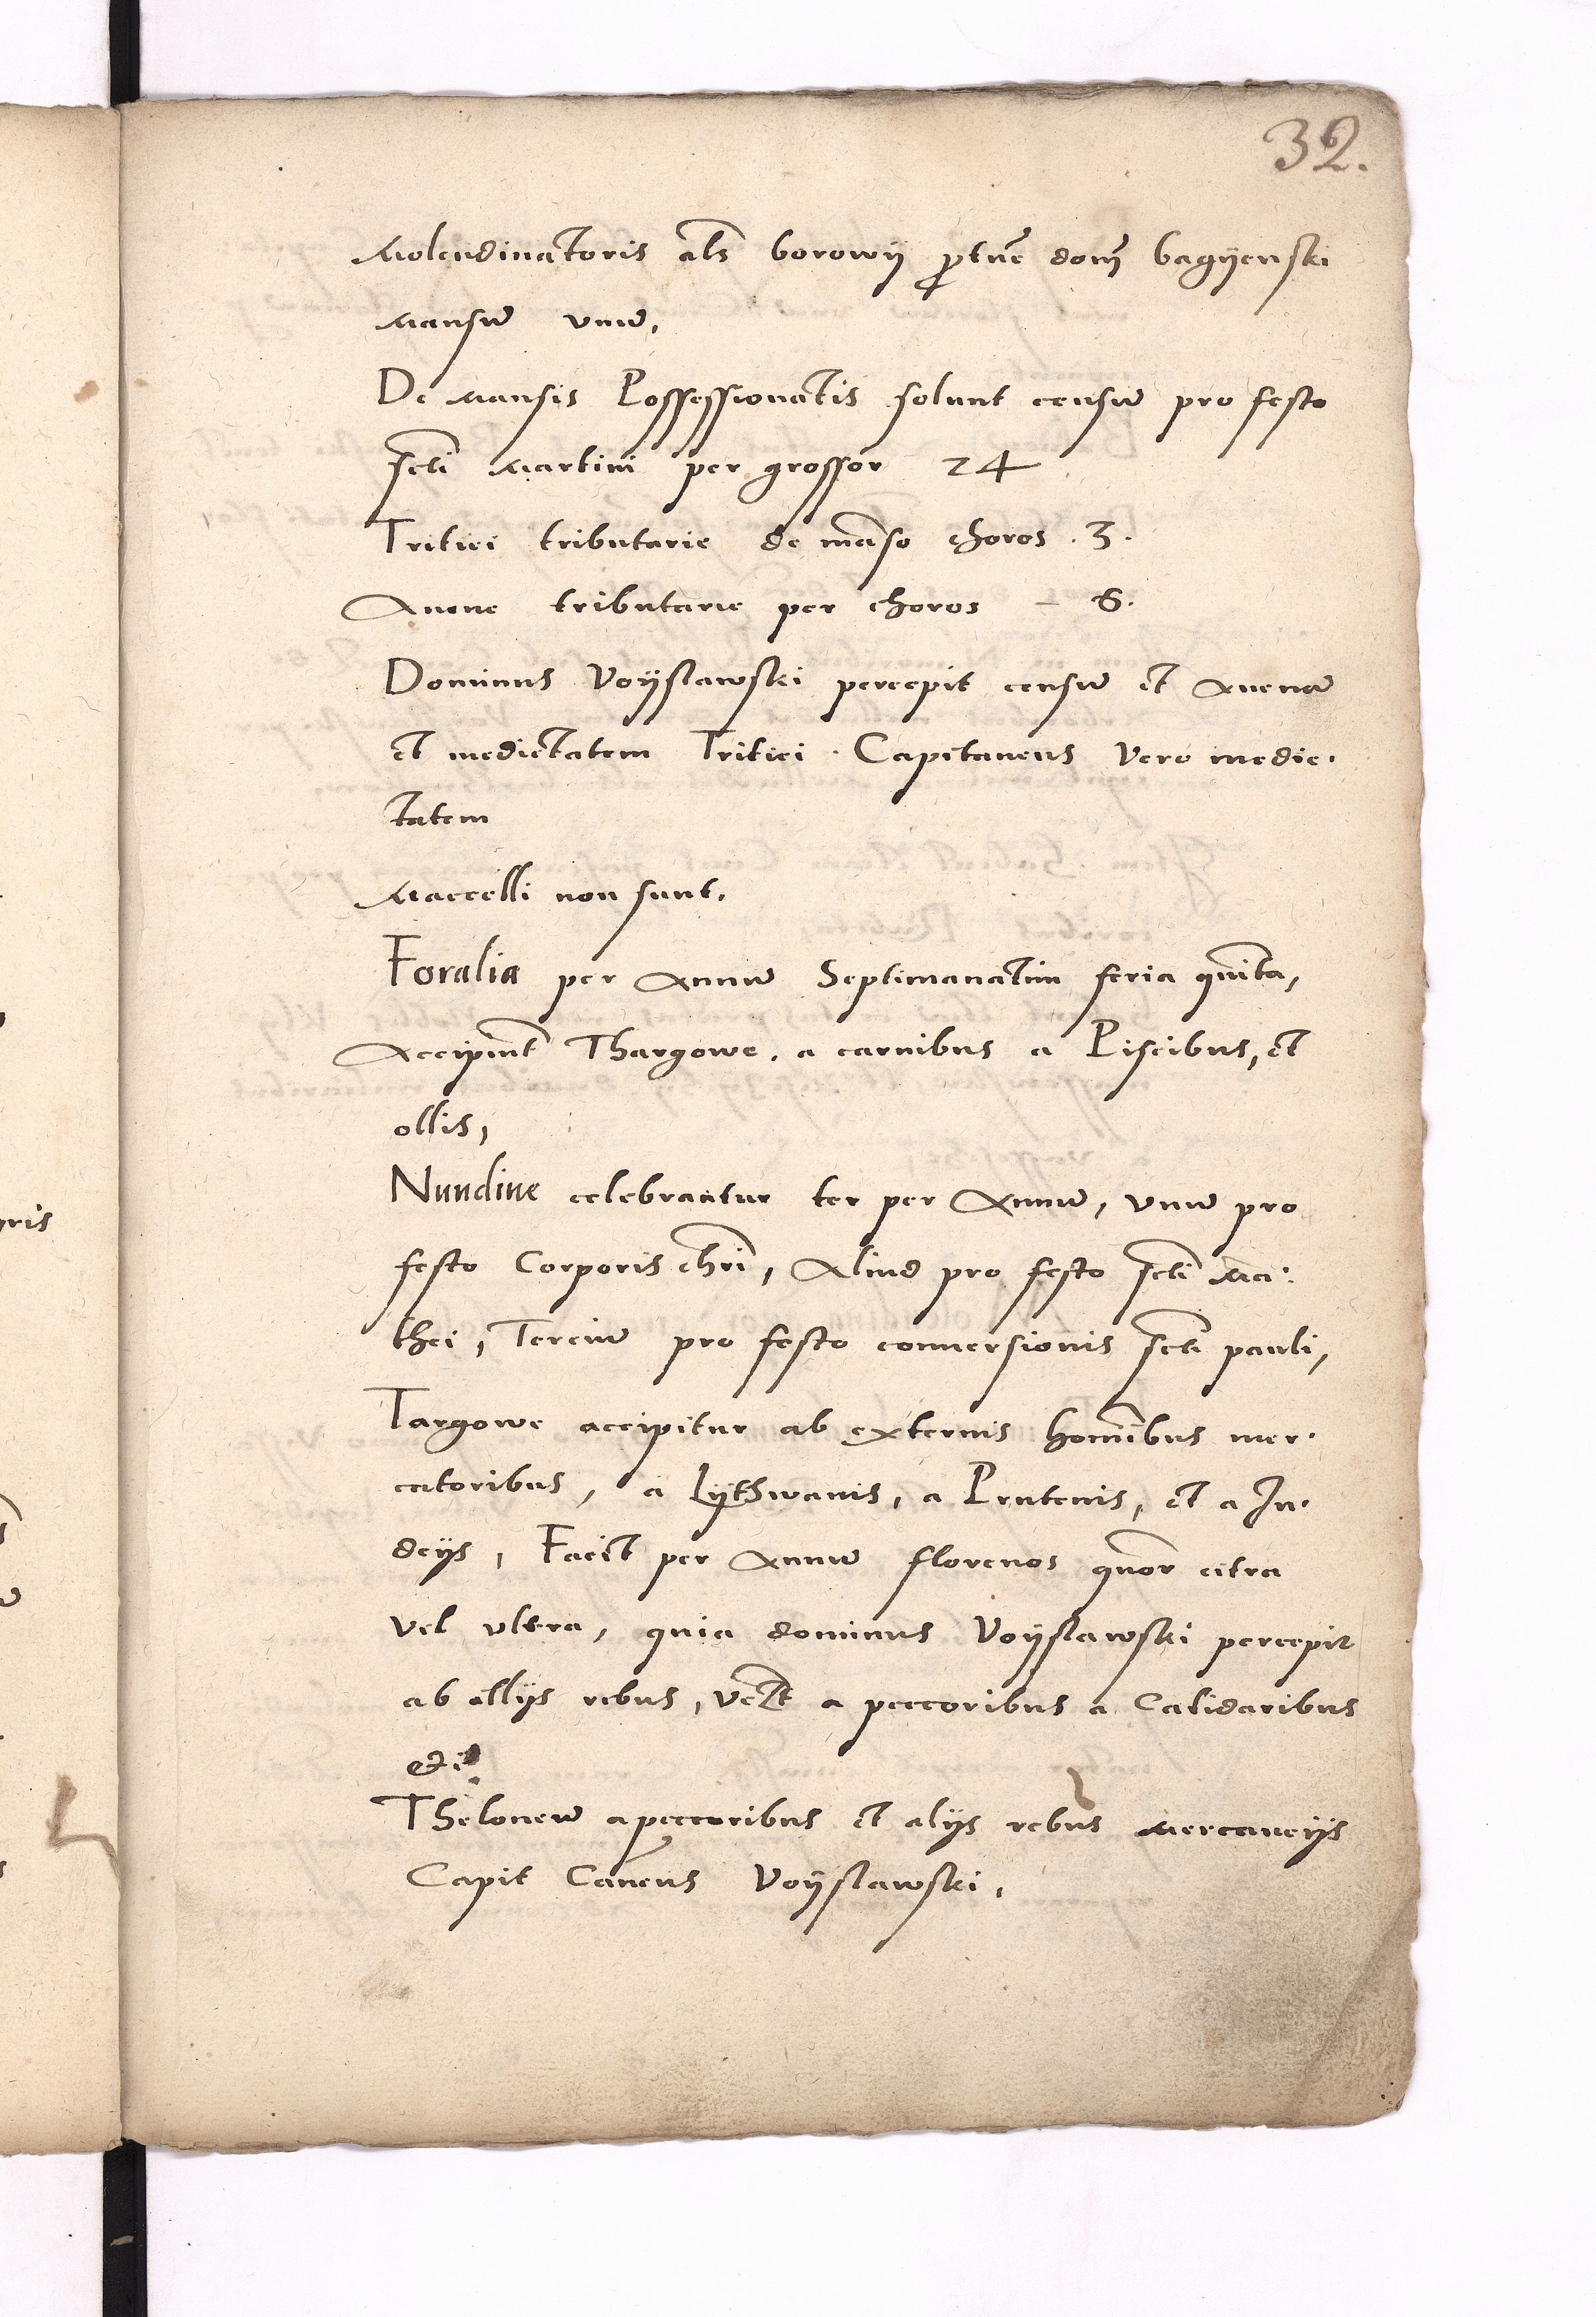 32.
Molendinatoris als borowÿ ptne domi bagÿenski
Mansu vnu,
De Mansis Possessionatis soluut censu pro festo
scti Martini per grossor 24
Tritici tributarie de manso choros . 3.
Auene tributarie per choros – 6.
Dominus Voÿslawski percepit censu et Auena
et medietatem Tritici . Capitaneus Vero medie.
tatem
Maccelli non sunt.
Foralia per Annu Septimanatim feria quinta,
Accipiut Thargowe . a carnibus a Piscibus, et
ollis,
Nundine celebrantur ter per Annu, vnu pro
festo Corporis chri, Aliud pro festo scti Ma:
thei, Terciu pro festo conuersionis scti pauli,
Targowe accipitur ab externis hominibus mer.
catoribus, a Lÿthwanis, a Prutenis, et a Iu.
deÿs, Facit per Annu florenos quor citra
vel vltra, quia dominus Voÿslawski percepit
ab allÿs rebus, velt a peccoribus a Calidaribus
Theloneu a peccoribus et alÿs rebus Mercancÿs
Capit Caneus Voÿslawski,
ris